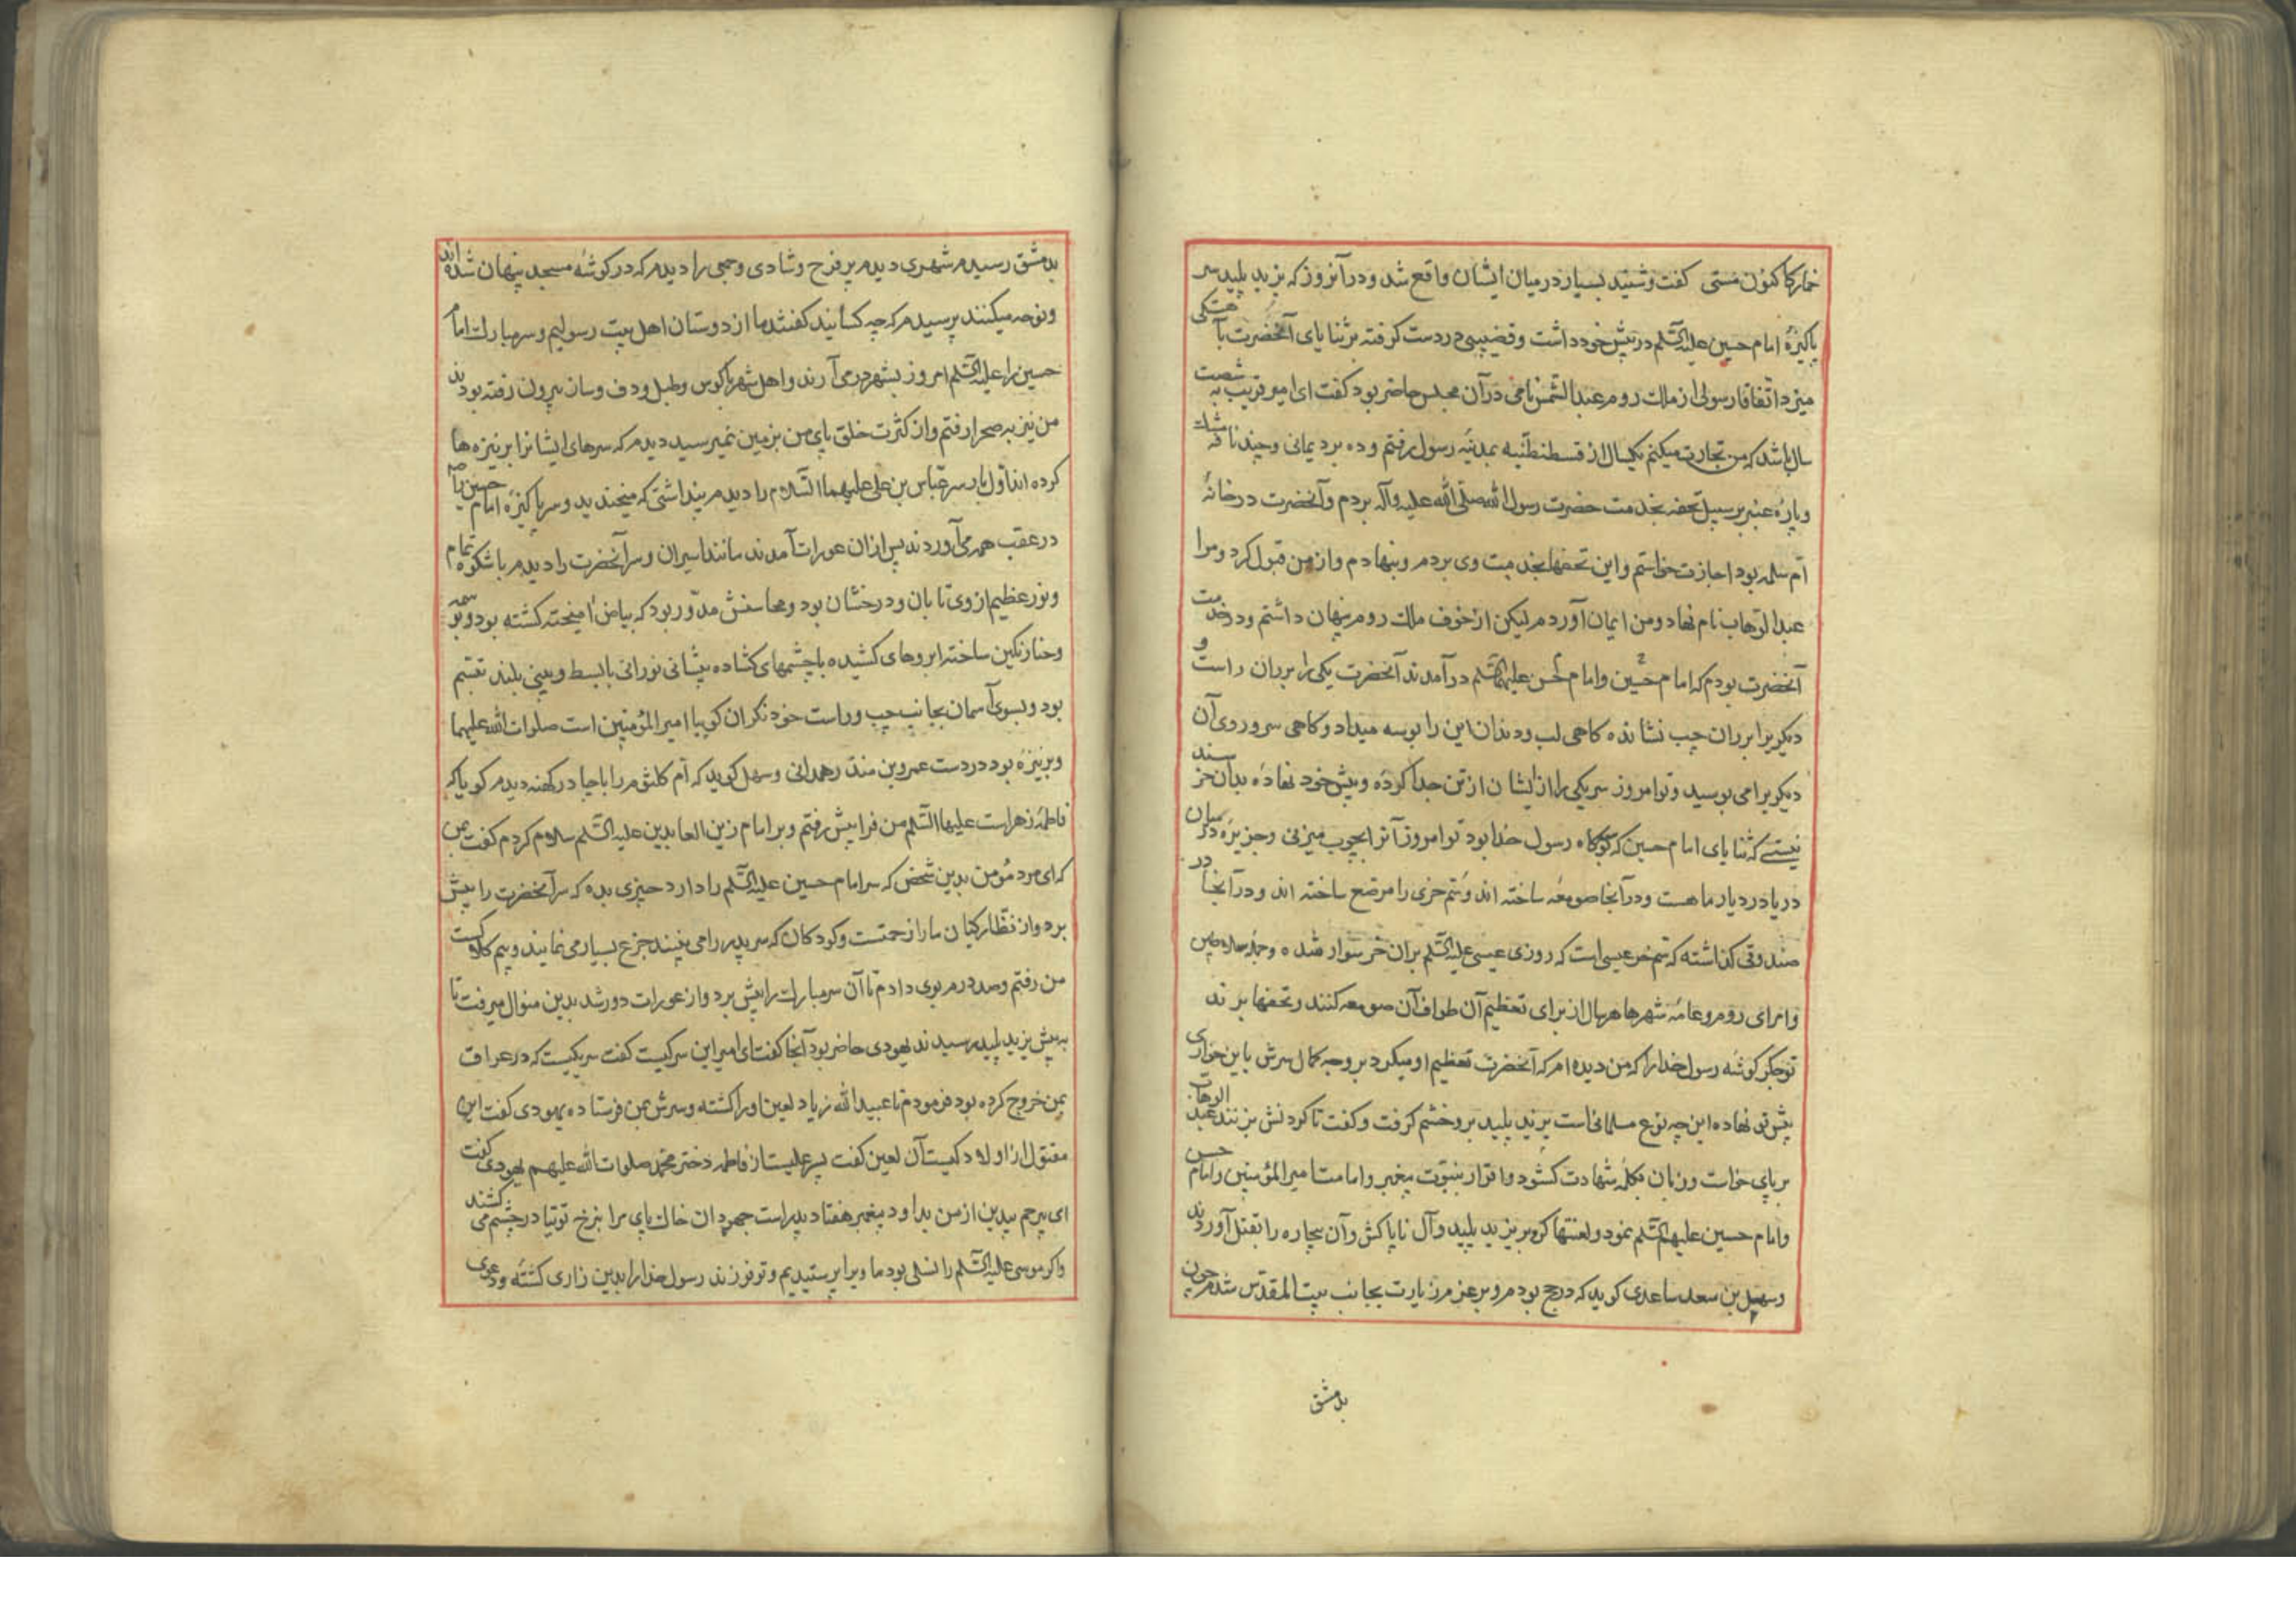 خمار کا کنون مستی کفت و شنید بسیار در میان ایشان واقع شد و در آنروز که یزید پلید سر
پاکیزهٔ امام حسین علیه السّلم در پیش خود داشت و قضیبی در دست کرفته بر ثنایای آنحضرت بآهستکی
میزد اتّفاقا رسولی از ملک روم عبد الشّمس نامی در آن مجلس حاضر بود کفت ای امیر قریب به شصت
سال باشد که من تجارت میکنم یکسال از قسطنطنیه بمدینه رسول رفتم و ده برد یمانی و چند نافه مشک
و پارهٔ عنبر بر سبیل تحفه بخدمت حضرت رسول الله صلّی الله علیه و آله بردم و آنحضرت در خانهٔ
امّ سلمه بود اجازت خواستم و این تحفها بخدمت وی بردم و بنهادم و از من قبول کرد و مرا
عبد الوهاب نام نهاد و من ایمان آوردم لیکن از خوف ملک روم پنهان داشتم و در خدمت
آنحضرت بودم که امام حسین و امام حسن علیهما السّلم در آمدند آنحضرت یکی را بر ران راست و
دیکریرا بر ران چپ نشانده کاهی لب و دندان این را بوسه میداد و کاهی سر و روی آن
دیکریرا می بوسید و تو امروز سر یکی را از ایشان از تن جدا کرده و پیش خود نهاده بدان خرسند
نیستی که ثنایای امام حسین که بوسه‌کاه رسول خدا بود تو امروز آنرا بچوب میزنی و جزیرهٔ در میان
دریا در دیار ما هست و در آنجا صومعه ساخته اند و سُم خری را مرصّع ساخته اند و در آنجا در
صندوقی کذاشته که سُم خر عیسی است که روزی عیسی علیه السّلم بران خر سوار شده و
وامرای روم و عامهٔ شهرها هر سال از برای تعظیم آن طواف آن صومعه کنند و تحفها برند
تو جکر کوشهٔ رسول خدا را که من دیده‌ام که آنحضرت تعظیم او میکرد بر وجه کمال سرش باین خواری
پیش تو نهاده این چه نوع مسلمانی است یزید پلید بر وخشم کرفت و کفت تا کردنش بزنند عبد الوهاب
بر پای خواست و زبان بکلمه شهادت کشود و اقرار بنبوّت پیغمبر و امامت امیر المؤمنین و امام حسن
و امام حسین علیهم السّلم نمود و لعنتها کرد بر یزید پلید و آل ناپاکش و آن بیچاره را بقتل آوردند
و سهیل بن سعد ساعدی کوید که در حج بودم و بر عزم زیارت بجانب بیت المقدّس شدم چون
بدمشق
بدمشق رسیدم شهری دیدم پر فرح و شادی و جمعی را دیدم که در کوشهٔ مسجد پنهان شده اند
و نوحه میکنند پرسیدم که چه کسانید کفتند ما از دوستان اهل بیت رسولیم و سر مبارک امام
حسین را علیه السّلم امروز بشهر در می آرند و اهل شهر با کوس و طبل و دف و ساز بیرون رفته بودند
من نیز به صحرا رفتم و از کثرت خلق پای من بزمین نمیرسید دیدم که سرهای ایشانرا بر نیزه ها
کرده اند اوّل بار سر عبّاس بن علی علیهما السّلام را دیدم پنداشتی که میخندید و سر پاکیزهٔ امام حسین را
در عقب همه می آوردند پس ازان عورات آمدند مانند اسیران و سر آنحضرت را دیدم با شکوه تمام
و نور عظیم از وی تابان و درخشان بود و محاسنش مدّور بود که بیاض آمیخته کشته بود و بوسمه
و حنا رنکین ساخته ابروهای کشیده با چشمهای کشاده پیشانی نورانی با بسط و بینی بلند تبسّم
بود و بسوی آسمان بجانب چپ و راست خود نکران کویا امیر المؤمنین است صلوات الله علیهما
و بر نیزه بود در دست عمرو بن منذر همدانی و سهل کوید که امّ کلثوم را با جادر کهنه دیدم کویا که
فاطمهٔ زهراست علیها السّلم من فرا پیش رفتم و بر امام زین العابدین علیه السّلم سلام کردم کفت بمن
که ای مرد مؤمن بدین شخص که سر امام حسین علیه السّلم را دارد چیزی بده که سر آنحضرت را پیش
برد و از نظّارکیان ما را زحمتست و کودکان که سر پدر را می بینند جزع بسیار می نمایند و بیم هلاکست
من رفتم و صد درم بوی دادم تا آن سر مبارک را پیش برد و از عورات دور شد بدین منوال میرفت تا
به پیش یزید پلید رسیدند یهودی حاضر بود آنجا کفت ای امیر این سر کیست کفت سر یکیست که در عراق
بمن خروج کرده بود فرمودم تا عبید الله زیاد لعین او را کشته و سرش بمن فرستاده یهودی کفت این
مقتول از اولاد کیست آن لعین کفت پسر علیست از فاطمه دختر محمّد صلوات الله علیهم یهودی کفت
ای بیرحم بیدین از من بداود پیغمبر هفتاد پدر است جهودان خاک پای مرا بنرخ توتیا در چشم می کشند
و اکر موسی علیه السّلم را نسلی بود ما ویرا پرستیدیم و تو فرزند رسول خدا را بدین زاری کشتهٔ و دعوی